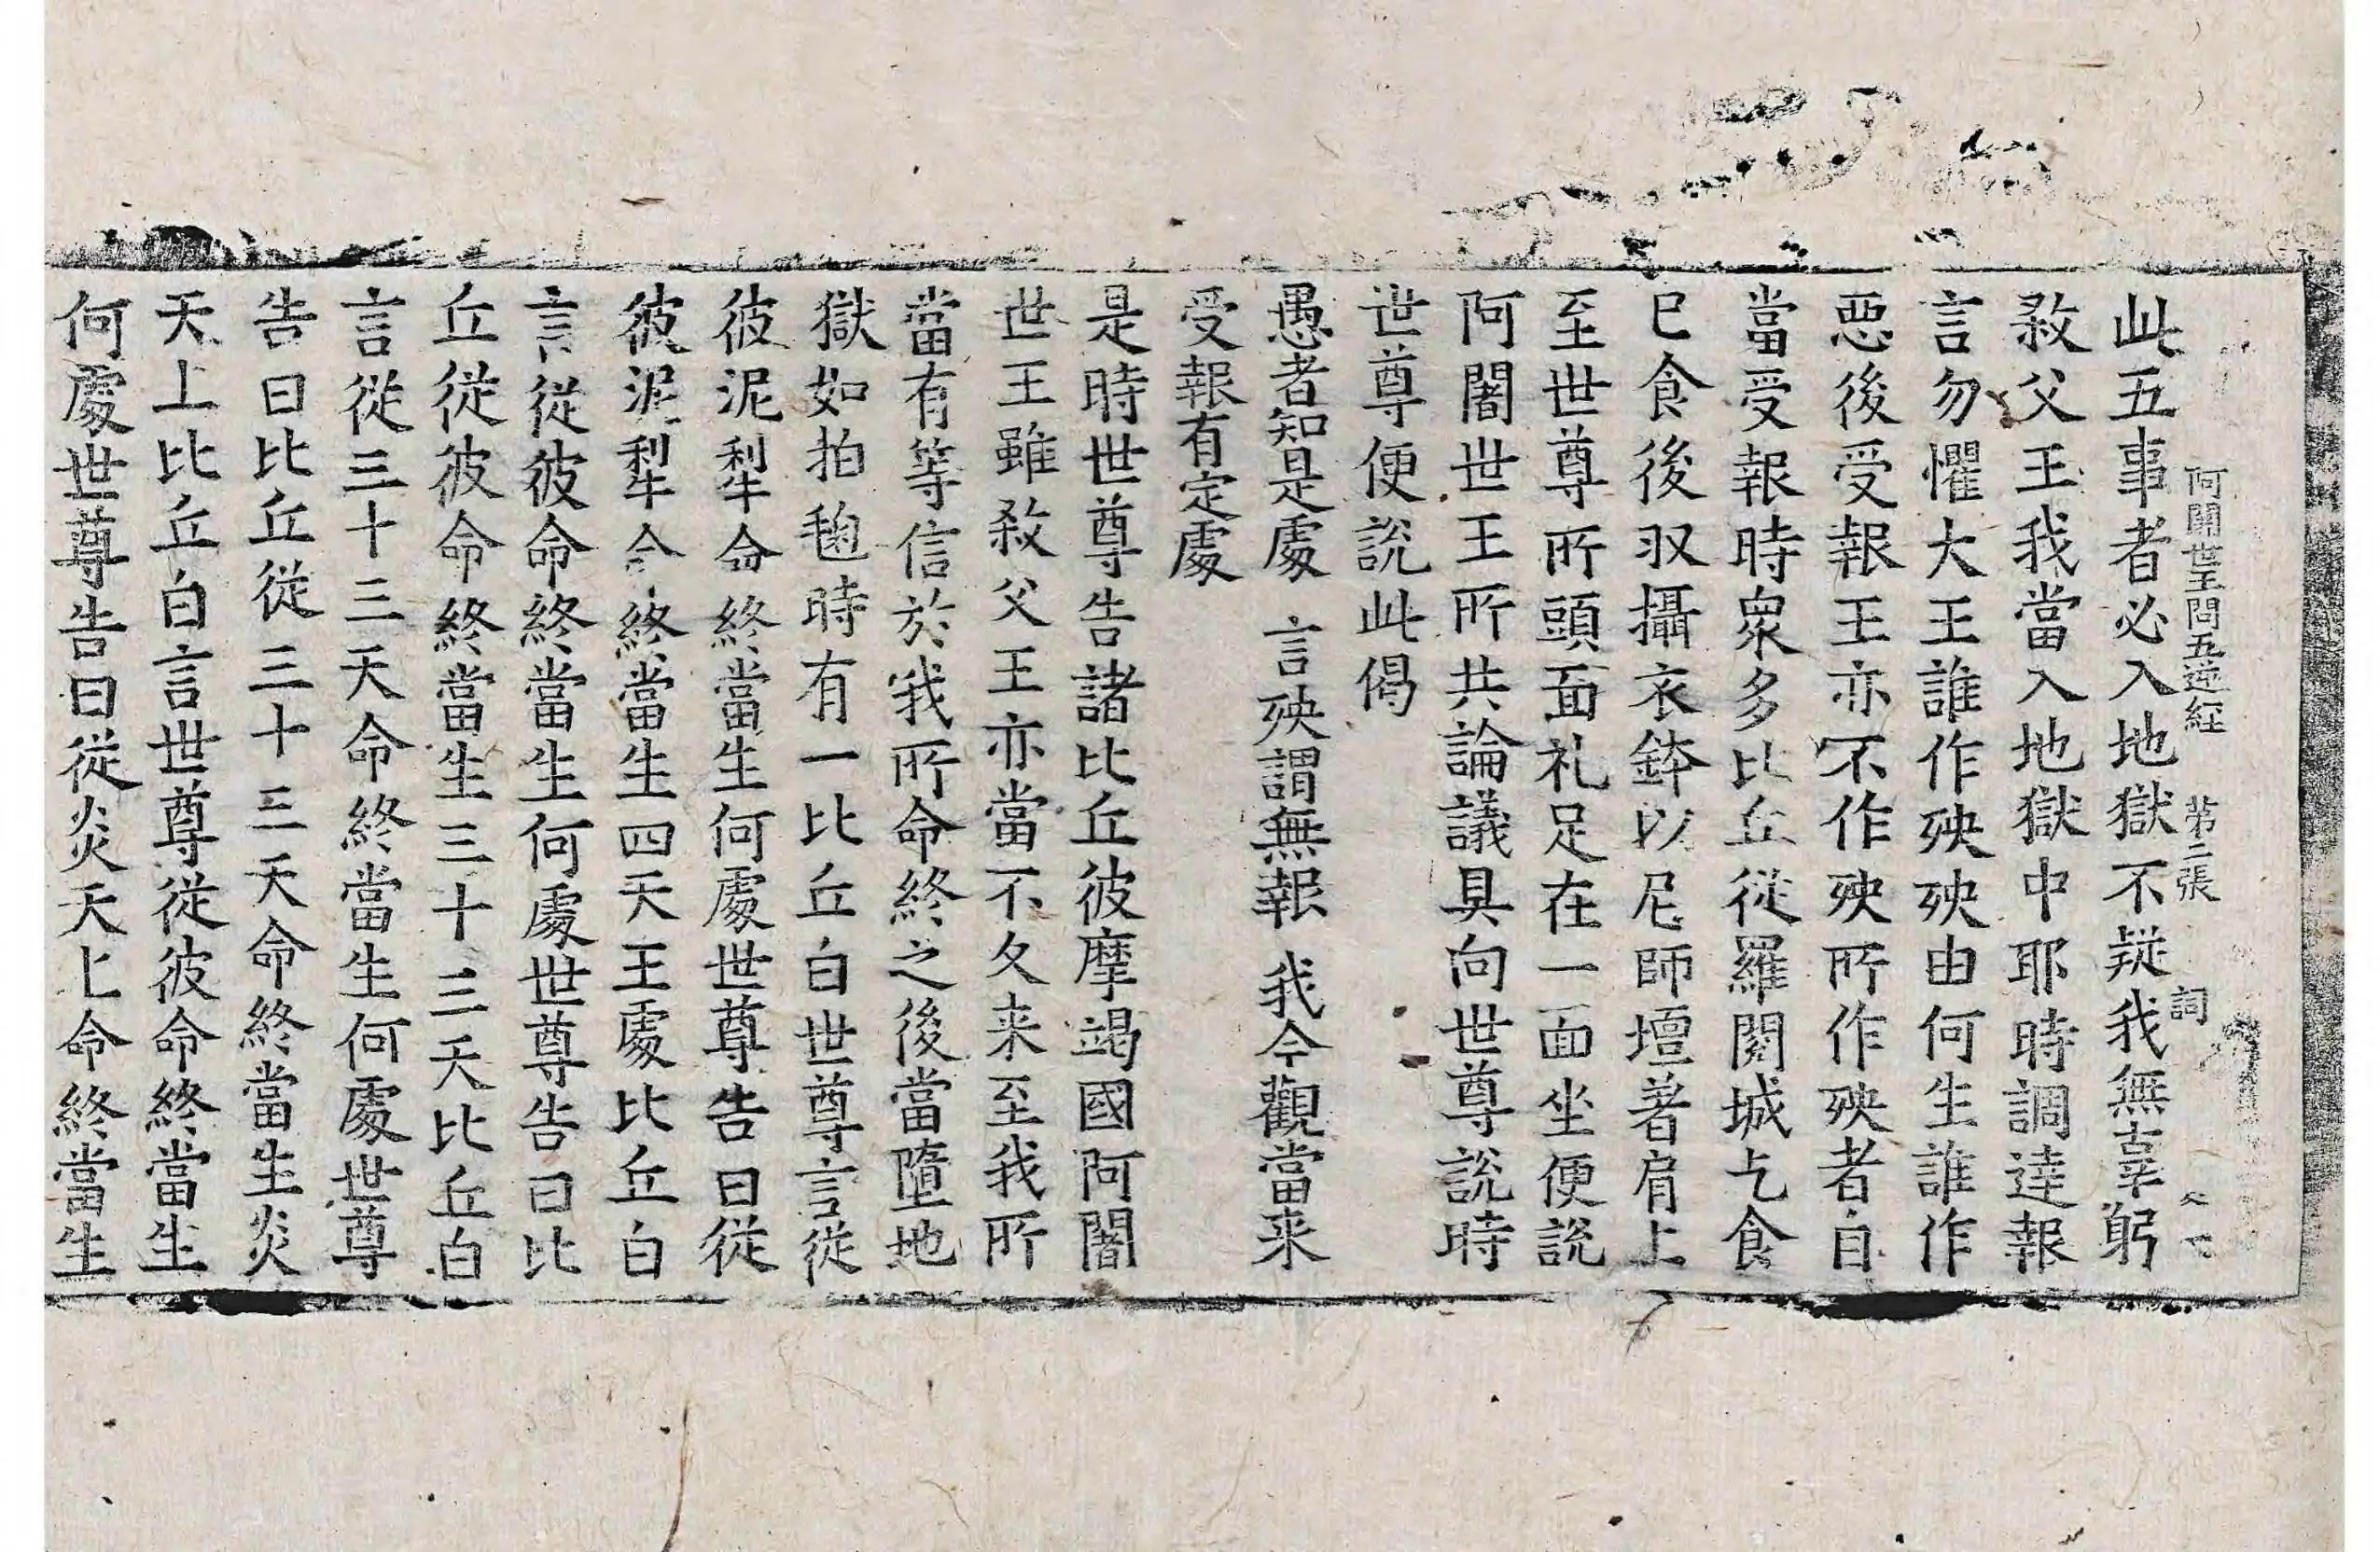 阿闍世王問五逆経 第二張 詞
此五事者必入地獄不疑我無辜躬
殺父王我當入地獄中耶時調達報
言勿懼大王誰作殃殃由何生誰作
惡後受報王亦不作殃所作殃者自
當受報時衆多比丘從羅閱城乞食
已食後収攝衣鉢以尼師壇著肩上
至世尊所頭面礼足在一面坐便說
阿闍世王所共論議具向世尊說時
世尊便說此偈
愚者知是處 言殃謂無報 我今觀當来
受報有定處
是時世尊告諸比丘彼摩竭國阿闍
世王雖殺父王亦當不久来至我所
當有等信於我所命終之後當墮地
獄如拍毱時有一比丘白世尊言從
彼泥犁命終當生何處世尊告曰從
彼泥犁命終當生四天王處比丘白
言從彼命終當生何處世尊告曰比
丘從彼命終當生三十三天比丘白
言從三十三天命終當生何處世尊
告曰比丘從三十三天命終當生炎
天上比丘白言世尊從彼命終當生
何處世尊告曰從炎天上命終當生